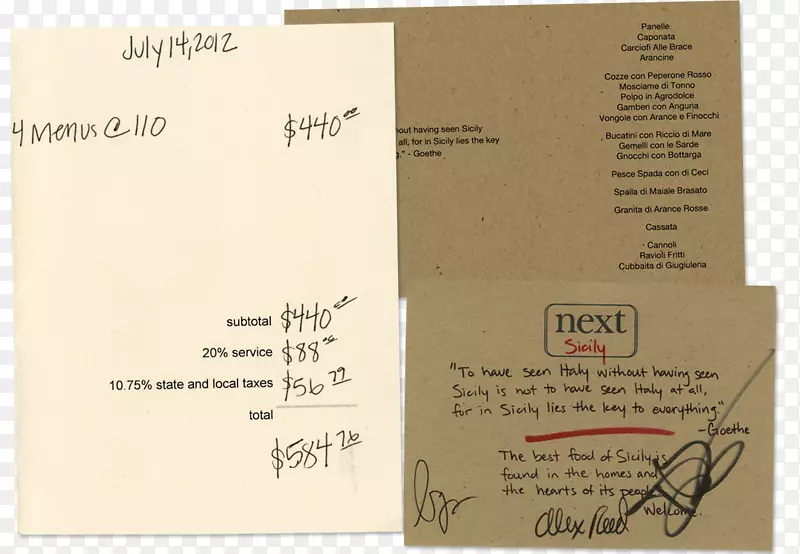 July 14, 2012
4 Menus @ 110 $440.00
subtotal $440.00
20% service $88.00
10.75% state and local taxes $56.79
total
$584.76
out having seen Sicily
all, for in Sicily lies the key
." - Goethe
Panelle
Caponata
Carciofi Alle Brace
Arancine
Cozze con Peperone Rosso
Mosciame di Tonno
Polpo in Agrodolce
Gamberi con Anguria
Vongole con Arance e Finocchi
Bucatini con Riccio di Mare
Gemelli con le Sarde
Gnocchi con Bottarga
Pesce Spada con di Ceci
Spalla di Maiale Brasato
Granita di Arance Rosse
Cassata
Cannoli
Ravioli Fritti
Cubbaita di Giugiulena
next
Sicily
"To have seen Italy without having seen
Sicily is not to have seen Italy at all,
for in Sicily lies the key to everything."
-Goethe
The best food of Sicily is
found in the homes and
the hearts of its people.
Welcome.
Alex Reed